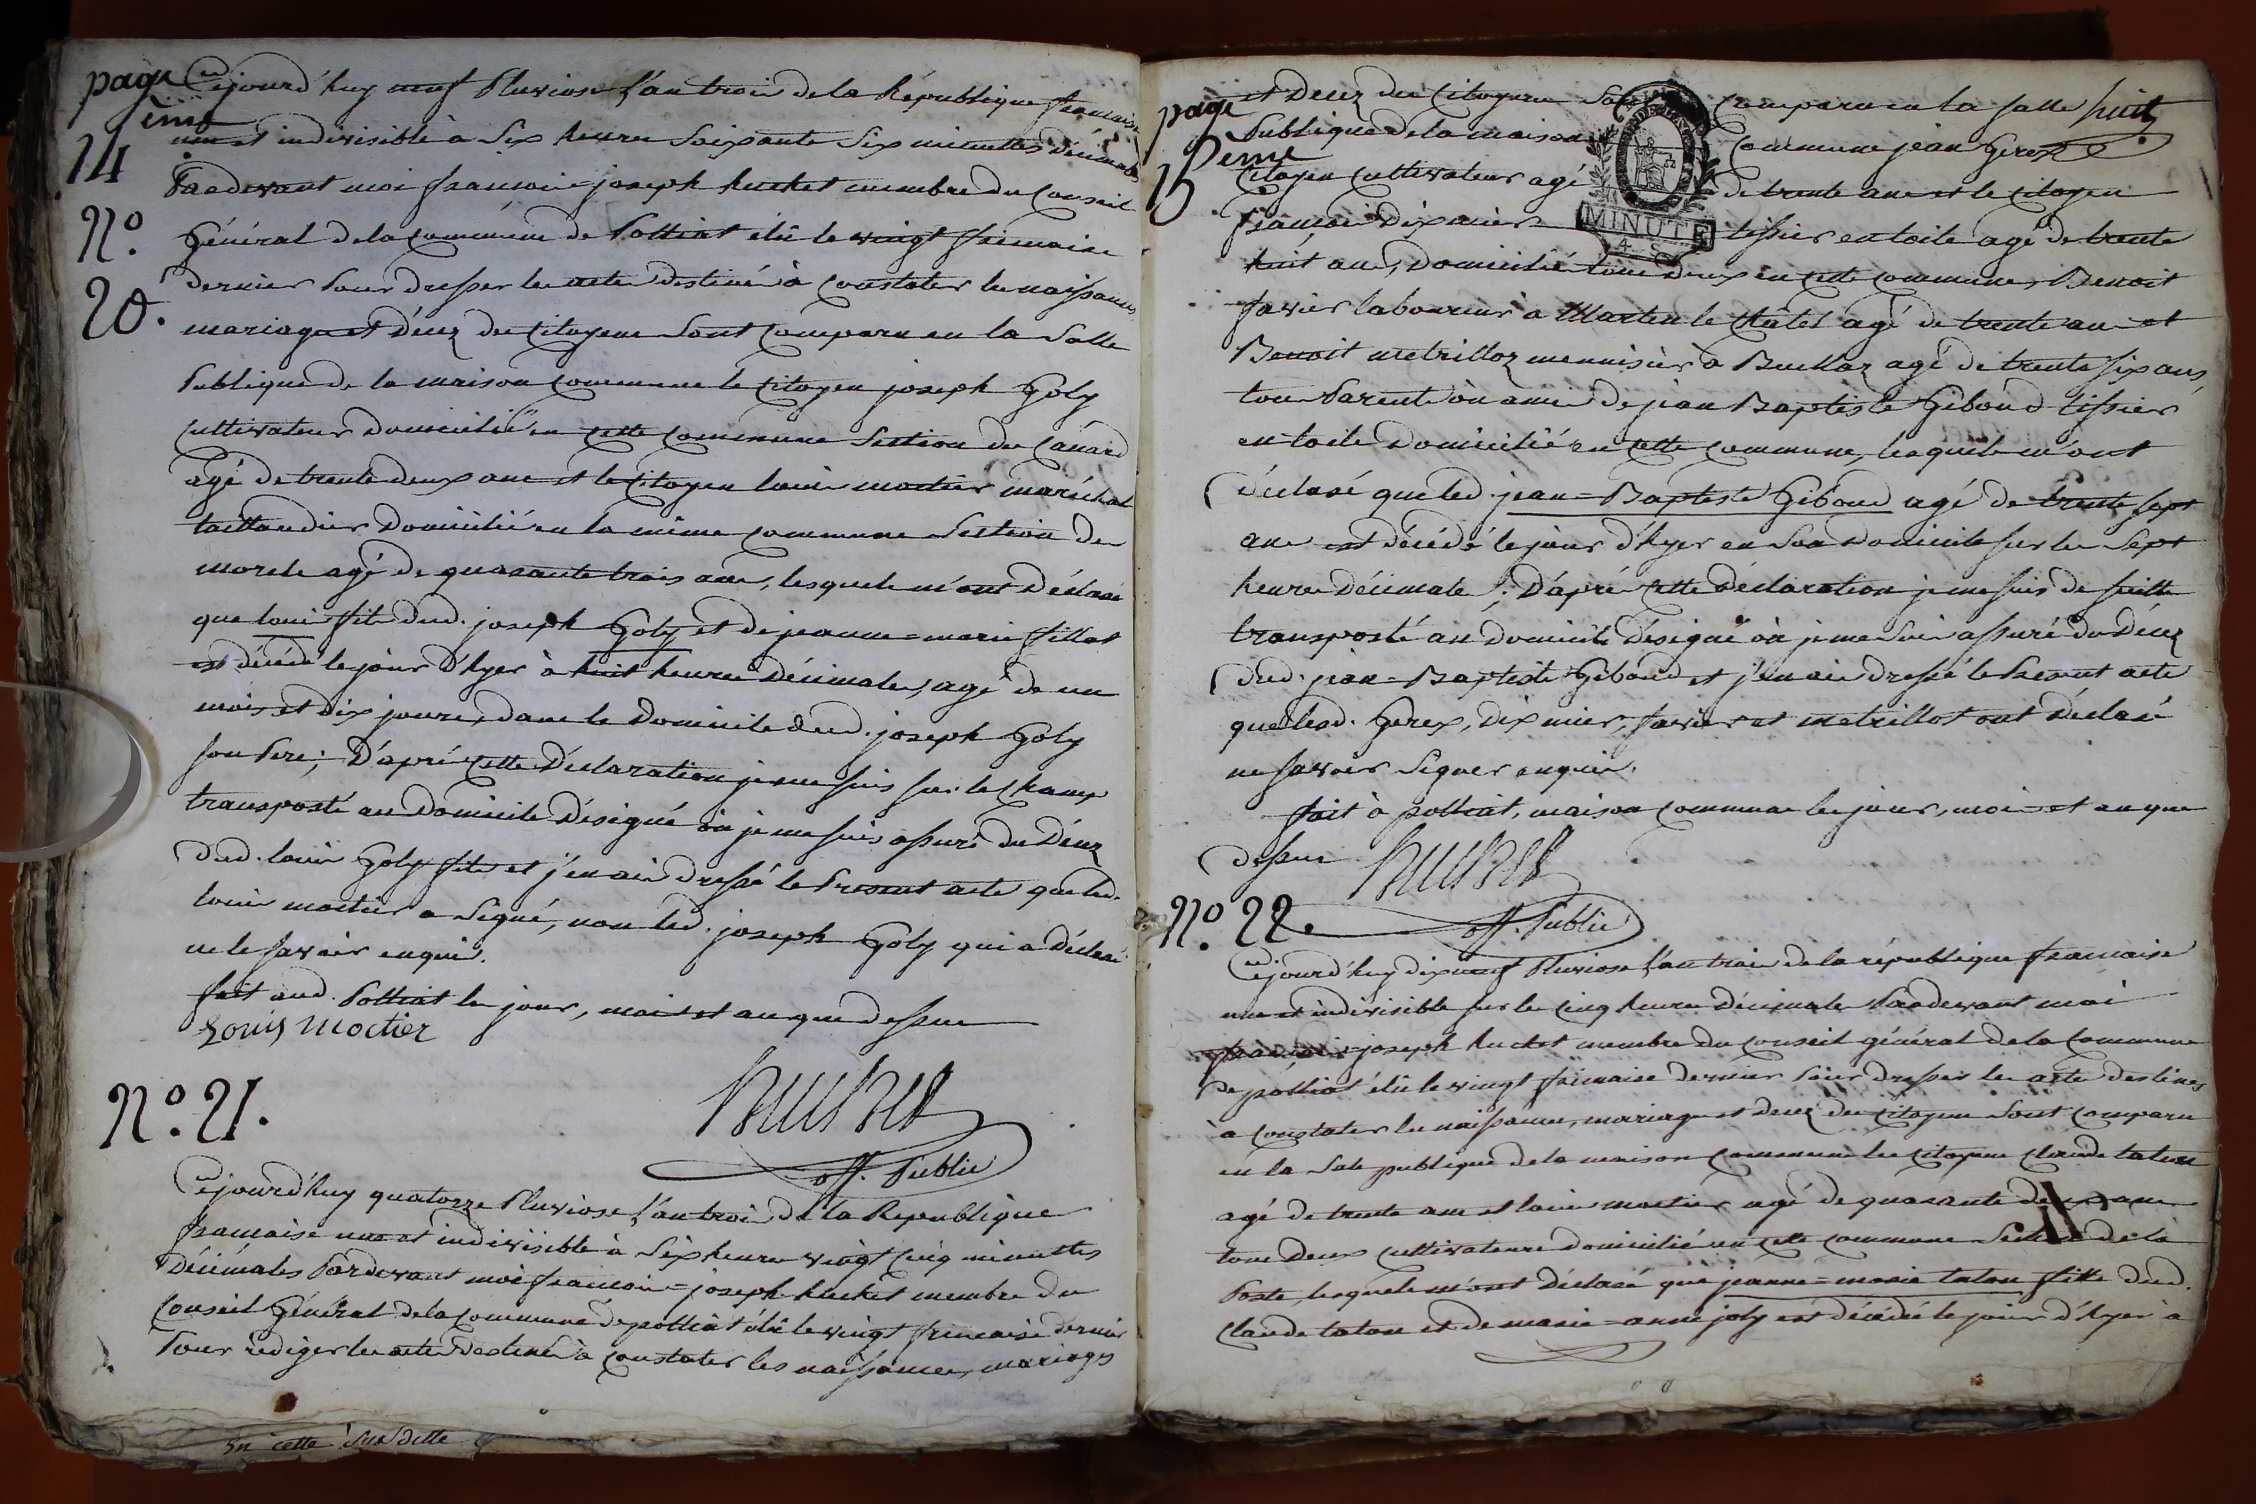 page
14
ème
N°.
20.
Cejourd'huy neuf Pluviose l'an trois de la République française
une et indivisible à Six heures Soixante Six minuttes décimales
Pardevant moi françois=joseph huchet membre du Conseil
Général de la commune de Polliat élû le vingt frimaire
dernier Pour dresser les actes destinés à constater les naissances
mariages et décez des Citoyens Sont comparu en la Salle
Publique de la maison commune le Citoyen joseph Goly
cultivateur domicilié en cette commune Section du Canard
agé de trente deux ans et le Citoyen louis moctier maréchal
taillandier domicilié en la même commune Section de
morele agé de quarante trois ans, lesquels m'ont déclaré
que louis fils dud. joseph Goly et de jeanne=marie fillot
est décédé le jour d'hyer à huit heures décimales, agé de un
mois et dix jours, dans le domicile dud. joseph Goly
son Pere; D'après cette déclaration je me suis sur le champ
transporté au domicile désigné où je me suis assuré du Décez
dud. louis Goly fils et j'en ai dressé le Présent acte que led.
louis moctier a Signé, non led. joseph Goly qui a déclaré
ne le savoir enquis.
fait aud. Polliat les jour, mois et an que dessus
Louis Moctier
huchet
off. Public
N°. 21.
Cejourd'huy quatorze Pluviose l'an trois de la République
française une et indivisible à Six heures vingt cinq minuttes
Décimales Pardevant moi françois=joseph huchet membre du
Conseil Général de la commune de polliat élû le vingt frimaire dernier
Pour rédiger les actes destinés à constater les naissances, mariages
En cette susditte
page
15
eme
huit
et Decez des Citoyens Sont comparu en la salle
Publique de la maison Commune jean Gerex
Citoyen cultivateur agé de trente ans et le citoyen
françois Dixmier tissier en toile agé de trente
huit ans, domicilié tous deux en cette commune, Benoit
favier laboureur a Marten le Châtel agé de trente ans et
Benoit metrilloz mennisier à Buellaz agé de trente six ans,
tous Parents où amis de jean Baptiste Giboud tissier
en toile domicilié en cette commune, lesquels m'ont
déclaré que led. jean=Baptiste Giboud agé de trente sept
ans est décédé le jour d'hyer en Son domicile sur les Sept
heures décimales; D'après cette déclaration je me suis de suitte
transporté au domicile désigné où je me suis assuré du Décez
dud. jean=Baptiste Giboud et j'en ai dressé le Présent acte
que lesd. Gerex, Dixmier, favier et metrillot ont déclaré
ne savoir signer enquis.
fait à polliat, maison commune les jour, mois et an que
dessus
MINUTE
4. S.
huchet
off. Public
N°. 22.
Cejourd'huy dix neuf Pluviose l'an trois de la république française
une et indivisible sur les cinq heures décimales Pardevant moi
françois=joseph huchet membre du conseil général de la Commune
de polliat élû le vingt frimaire dernier Pour dresser les actes destinés
à constater les naissances, mariages et decez des citoyens Sont comparu
en la Sale publique de la maison commune les citoyens claude talon
agé de trente ans et louis moctier agé de quarante deux ans
tous deux cultivateurs domicilié en cette commune Section de la
Poste, lesquels m'ont déclaré que jeanne=marie talon fille dud.
Claude talon et de marie=anne joly est décédée le jour d'hyer à